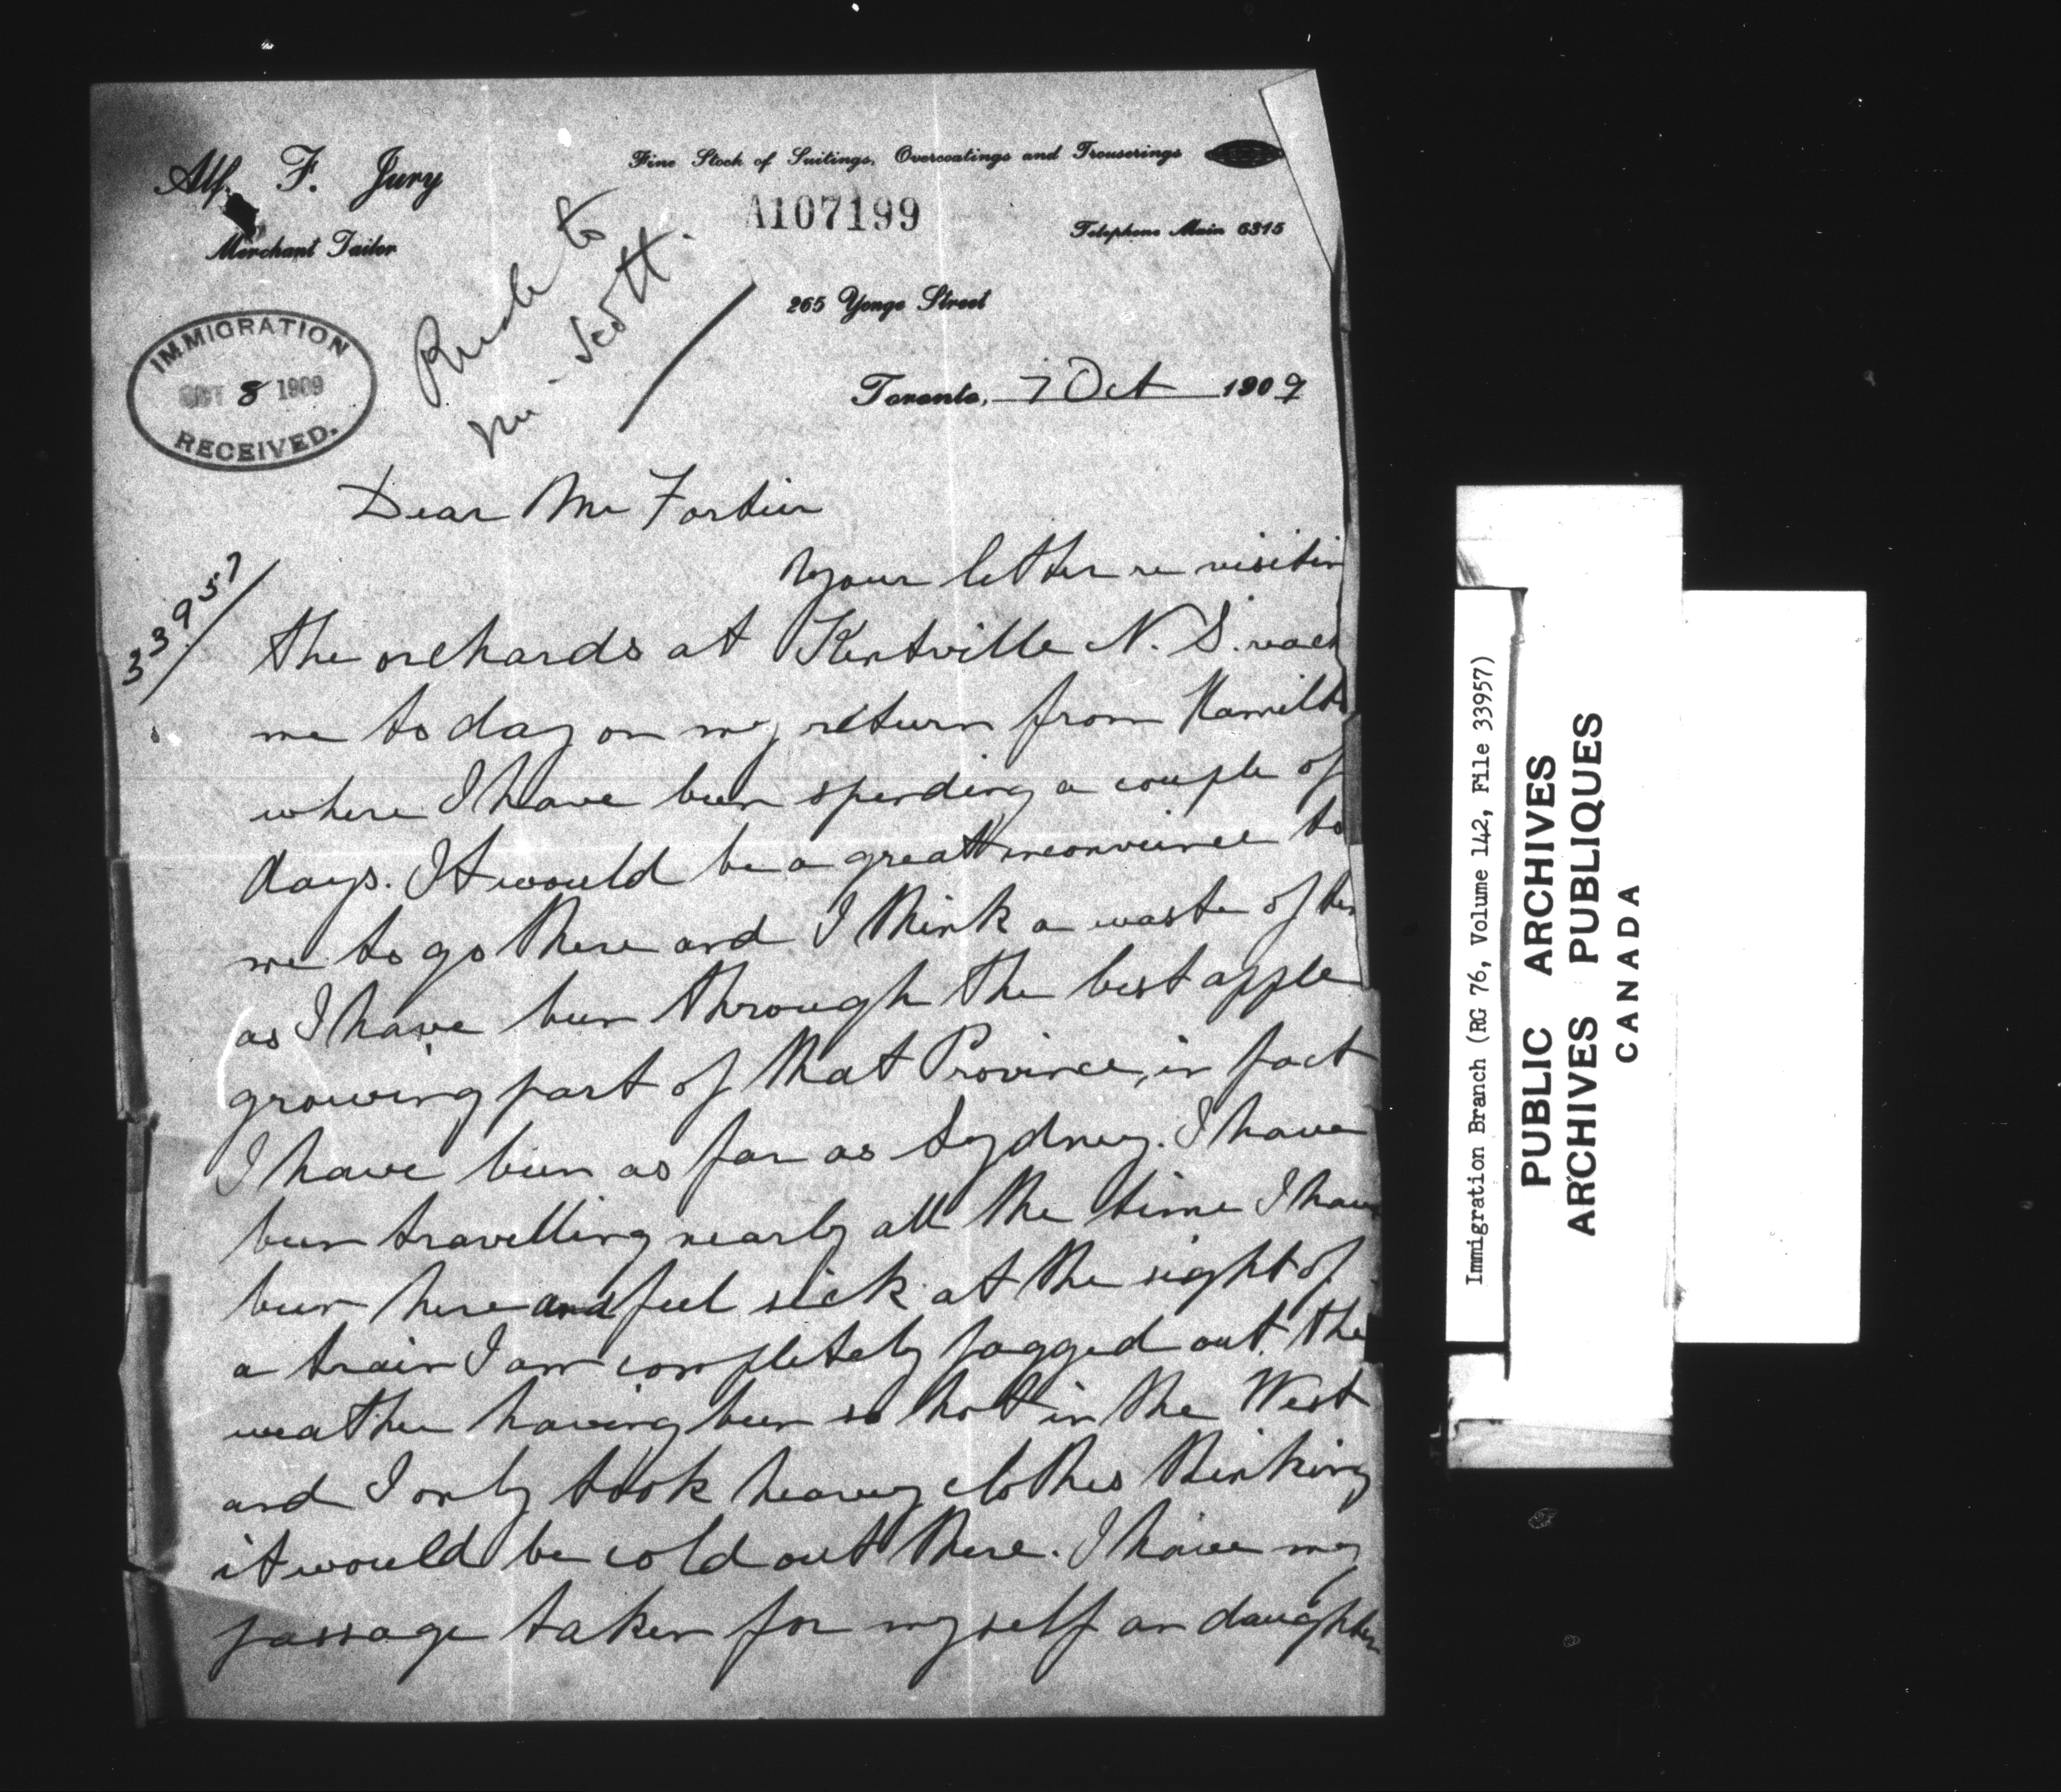 Alf. F. Jury
Merchant Tailor
Fine Stock of Suitings, Overcoatings and Trouserings
A107199
Telephone Main 6315
265 Yonge Street
IMMIGRATION
OCT 8 1909
RECEIVED.
to
Mr. Scott.
Toronto, 7 Oct 1909
33957
Dear Mr Fortier
Your letter re visitin
the orchards at Kentville N.S. reach
me to day on my return from Hamilto
where I have been spending a couple of
days. It would be a great inconveince to
me to go there and I think a waste of
as I have been through the best apple
growing part of that Province, in fact
I have been as far as Sydney. I have
been travelling nearly all the time I have
been here and feel sick at the sight of
a train I am completely fagged out, the
weather having been so hot in the West
and I only took heavy clothes thinking
it would be cold out there. I have my
passage taken for myself an daughter
Immigration Branch (RG 76, Volume 142, File 33957)
PUBLIC ARCHIVES
ARCHIVES PUBLIQUES
CANADA